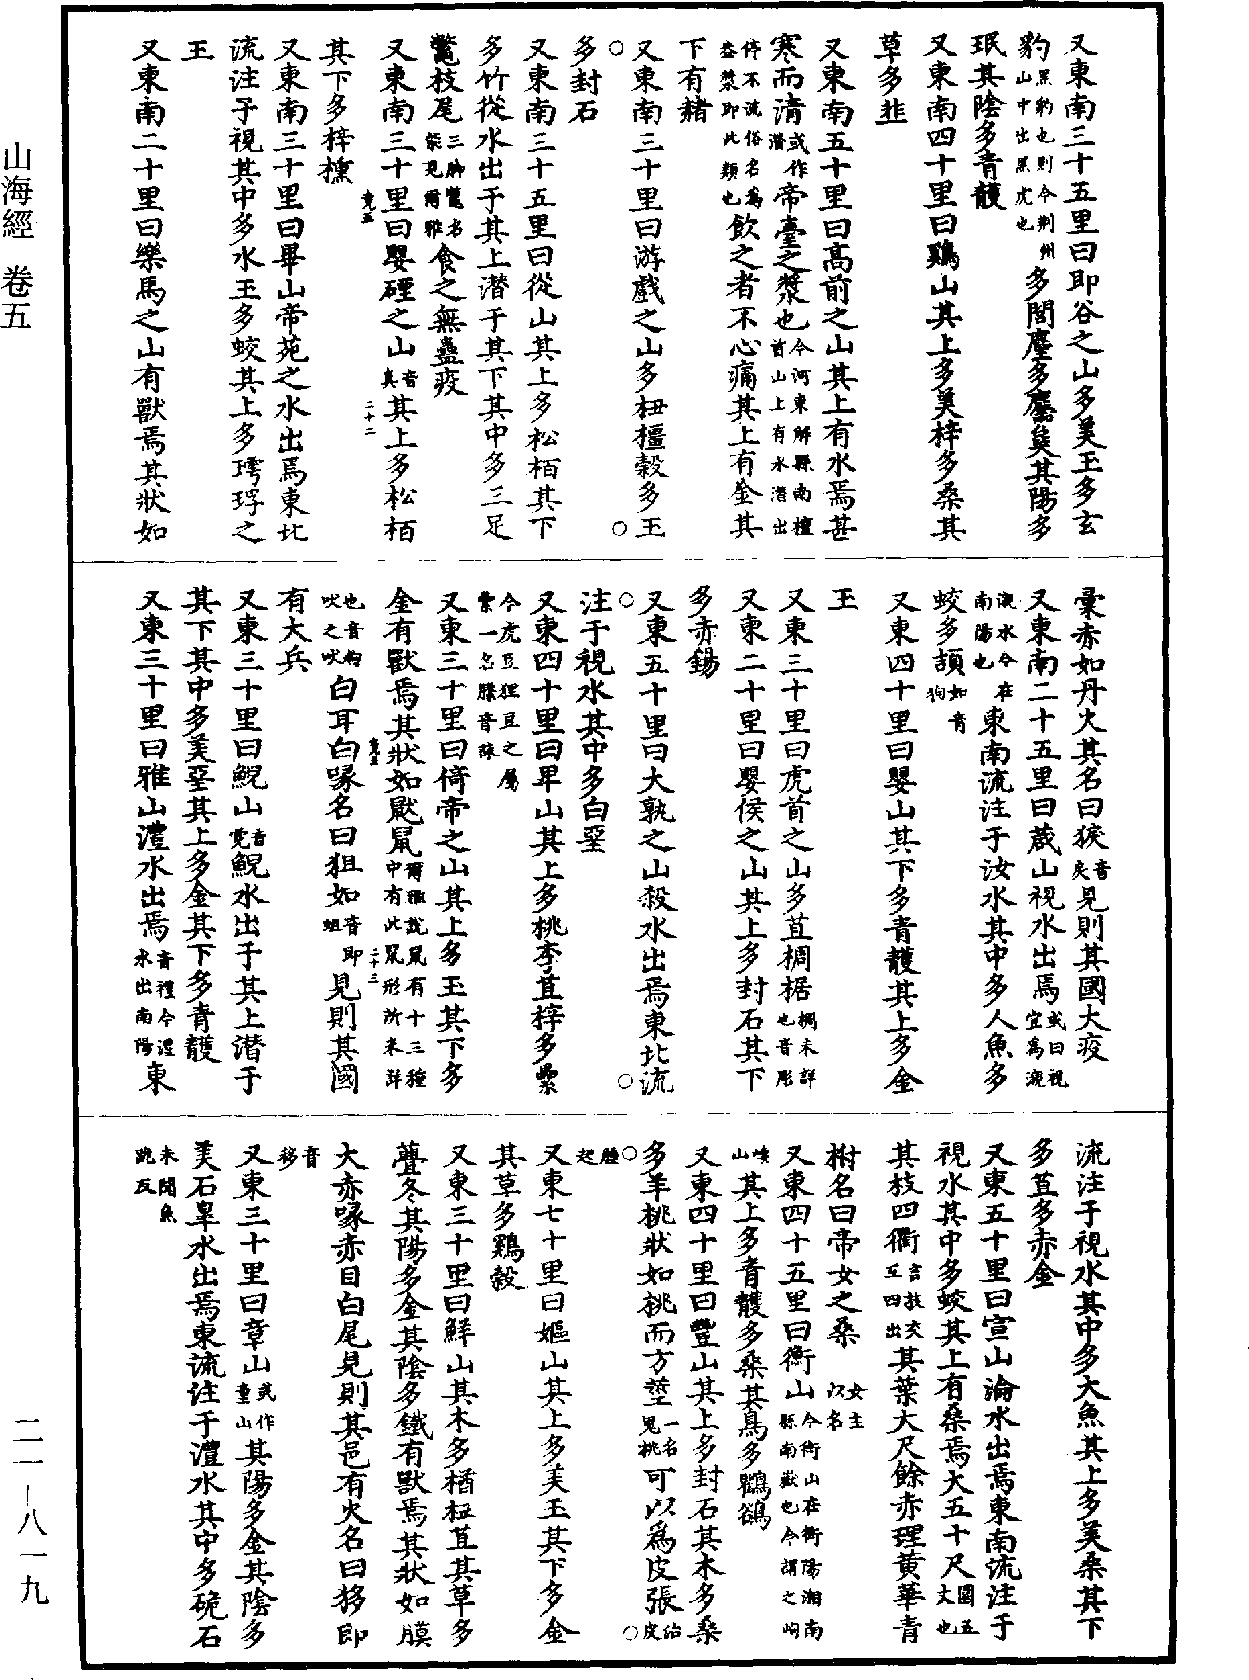 山海經 卷五
二一—八一九
又東南三十五里曰即谷之山多美玉多玄
豹黑豹也則今荆州山中出黑虎也多閭麈多麢㚟其陽多
珉其陰多青雘
又東南四十里曰鷄山其上多美梓多桑其
草多韭
又東南五十里曰高前之山其上有水焉甚
寒而清或作潛帝臺之漿也今河東解縣南檀首山上有水潛出
停不流俗名為盎漿即此類也飲之者不心痛其上有金其
下有赭
又東南三十里曰游戲之山多杻橿榖多玉
多封石
又東南三十五里曰從山其上多松栢其下
多竹從水出于其上潛于其下其中多三足
鼈枝尾三脚鼈名能見爾雅食之無蠱疫
又東南三十里曰嬰硜之山音真其上多松栢
其下多梓櫄
又東南三十里曰畢山帝苑之水出焉東北
流注于視其中多水玉多蛟其上多㻬琈之
玉
又東南二十里曰樂馬之山有獸焉其狀如
彙赤如丹火其名曰㺉音戾見則其國大疫
又東南二十五里曰葴山視水出焉或曰視宜為瀙
瀙水今在南陽也東南流注于汝水其中多人魚多
蛟多頡如青狗
又東四十里曰嬰山其下多青雘其上多金
玉
又東三十里曰虎首之山多苴椆椐椆未詳也音彫
又東二十里曰嬰侯之山其上多封石其下
多赤錫
又東五十里曰大孰之山殺水出焉東北流
注于視水其中多白堊
又東四十里曰卑山其上多桃李苴梓多纍
今虎豆狸豆之屬纍一名縢音誄
又東三十里曰倚帝之山其上多玉其下多
金有獸焉其狀如鼣鼠爾雅說鼠有十三種中有此鼠形所未詳
也音狗吠之吠白耳白喙名曰狙如音即蛆見則其國
有大兵
又東三十里曰鯢山音霓鯢水出于其上潛于
其下其中多美堊其上多金其下多青雘
又東三十里曰雅山澧水出焉音禮今澧水出南陽東
流注于視水其中多大魚其上多美桑其下
多苴多赤金
又東五十里曰宣山淪水出焉東南流注于
視水其中多蛟其上有桑焉大五十尺圍五丈也
其枝四衢言枝交互四出其葉大尺餘赤理黃華青
柎名曰帝女之桑女主以名
又東四十五里曰衡山今衡山在衡陽湘南縣南嶽也今謂之岣
嶁山其上多青雘多桑其鳥多鸜鵒
又東四十里曰豐山其上多封石其木多桑
多羊桃狀如桃而方莖一名鬼桃可以為皮張治皮
腫起
又東七十里曰嫗山其上多美玉其下多金
其草多鷄榖
又東三十里曰鮮山其木多楢杻苴其草多
虋冬其陽多金其陰多鐵有獸焉其狀如膜
大赤喙赤目白尾見則其邑有火名曰㺄即
音移
又東三十里曰章山或作童山其陽多金其陰多
美石皐水出焉東流注于澧水其中多脃石
未聞魚脆反